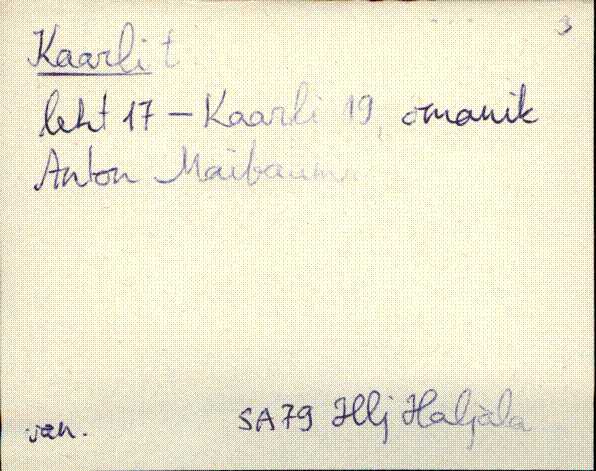 3
Kaarli t
leht 17 – Kaarli 19, omanik
Anton Maibaum
van. SA79 Hlj Haljala